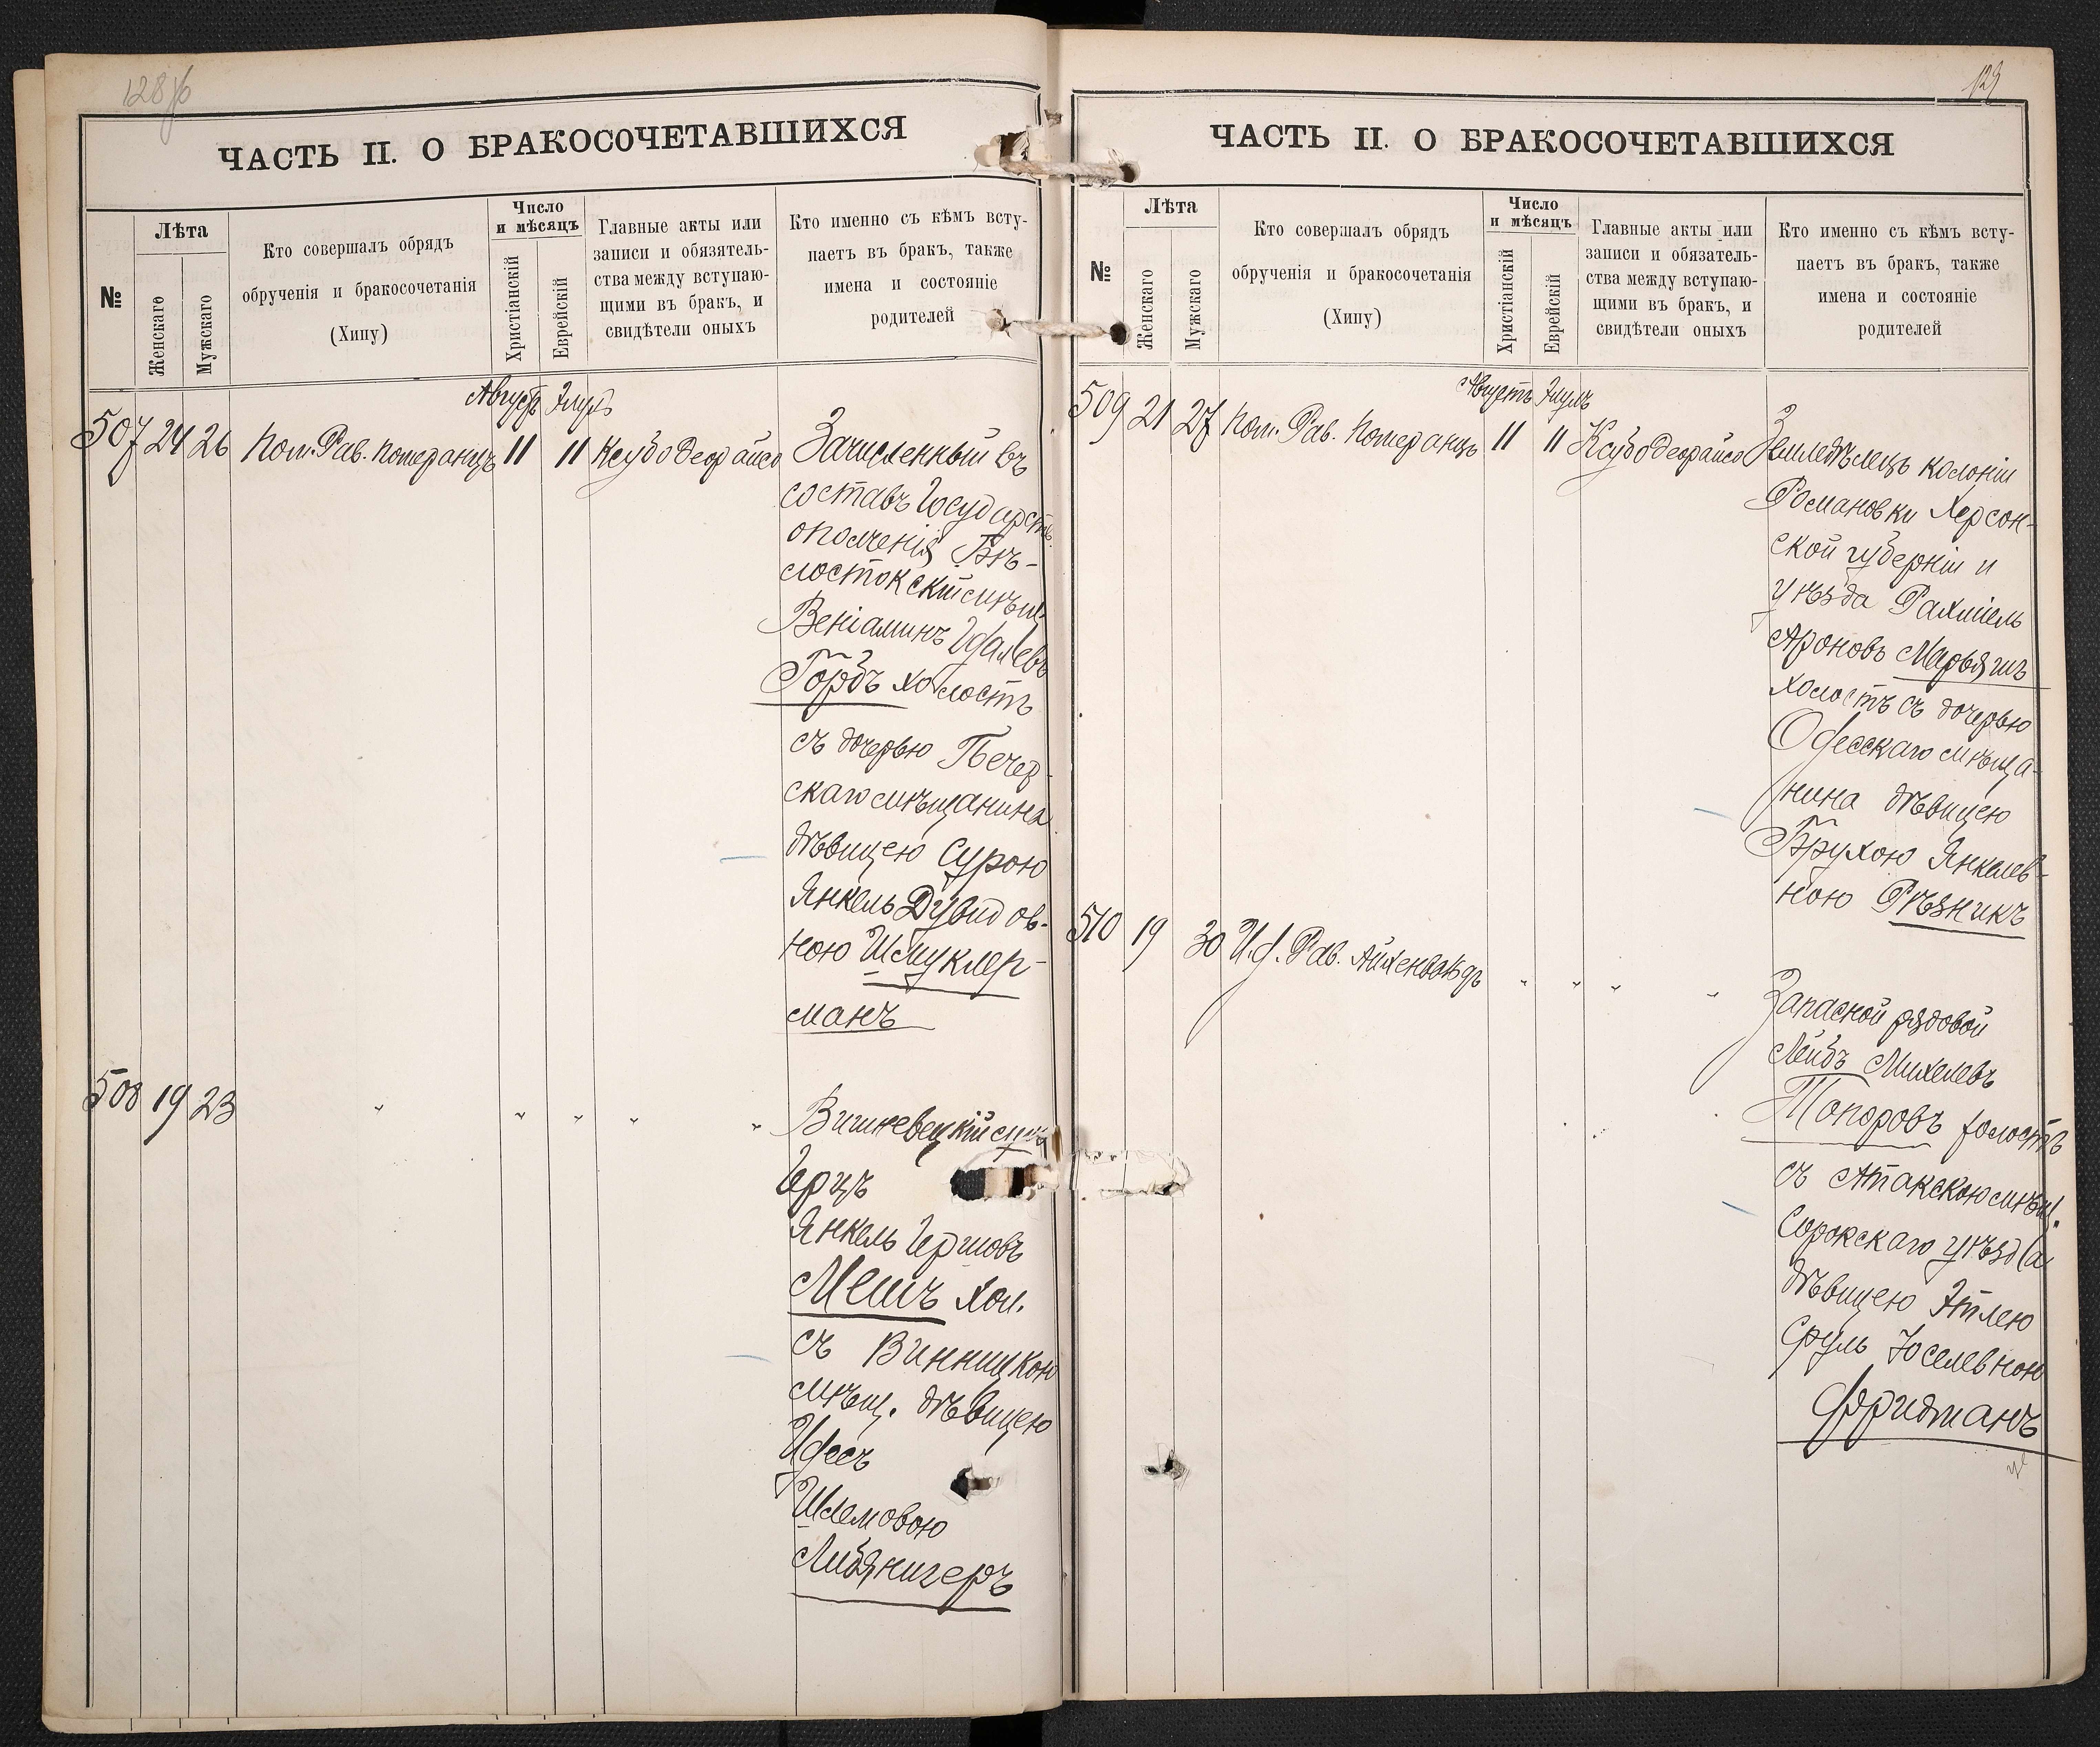 128 об
ЧАСТЬ II. О БРАКОСОЧЕТАВШИХСЯ
№
Лѣта
Женскаго
Мужскаго
Кто совершалъ обрядъ
обрученія и бракосочетанія
(Хипу)
Число
и мѣсяцъ
Христіанскій
Еврейскій
Главные акты или
записи и обязатель-
ства между вступаю-
щими въ бракъ, и
свидѣтели оныхъ
Кто именно съ кѣмъ всту-
паетъ въ бракъ, также
имена и состояніе
родителей
Августъ Элулъ
507 24 26 Пом. Рав. Померанцъ 11 11 Ксубо Деорайсо
Зачисленный въ
составъ Государств.
ополченія Бѣ-
лостокскій мѣщ.
Веніаминъ Удалевъ
Гордъ холостъ
съ дочерью Печер-
скаго мѣщанина
дѣвицею Сурою
Янкель Дувидов-
ною Шмуклер-
манъ
508 19 23 " " " " "
Вишневецкій мѣщ.
Герцъ
Янкель Гершовъ
Мешъ хол.
съ Винницкою
мѣщ. дѣвицею
Идесъ
Шлемовою
129
ЧАСТЬ II. О БРАКОСОЧЕТАВШИХСЯ
№
Лѣта
Женскаго
Мужскаго
Кто совершалъ обрядъ
обрученія и бракосочетанія
(Хипу)
Число
и мѣсяцъ
Христіанскій
Еврейскій
Главные акты или
записи и обязатель-
ства между вступаю-
щими въ бракъ, и
свидѣтели оныхъ
Кто именно съ кѣмъ всту-
паетъ въ бракъ, также
имена и состояніе
родителей
Августъ Элулъ
509 21 27 Пом. Рав. Померанцъ 11 11 Ксубо Деорайсо
Земледѣлецъ колоніи
Романовки Херсон-
ской губерніи и
уѣзда Рахміель
Ароновъ Марьяшъ
холостъ съ дочерью
Одесскаго мѣща-
нина дѣвицею
Брухою Янкелев-
ною Рѣзникъ
510 19 30 И.д. Рав. Айхенвальдъ " " " "
Запасной рядовой
Лейбъ Михелевъ
Топоровъ холостъ
съ Атакскою мѣщ.
Сорокскаго уѣзда
дѣвицею Этлею
Сруль Іоселевною
Фридманъ